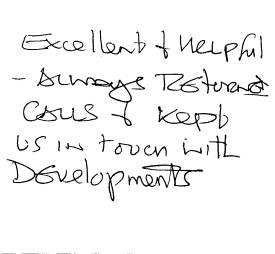 Excellent & Helpful
- Always Returned
Calls & Kept
us in touch with
Developments